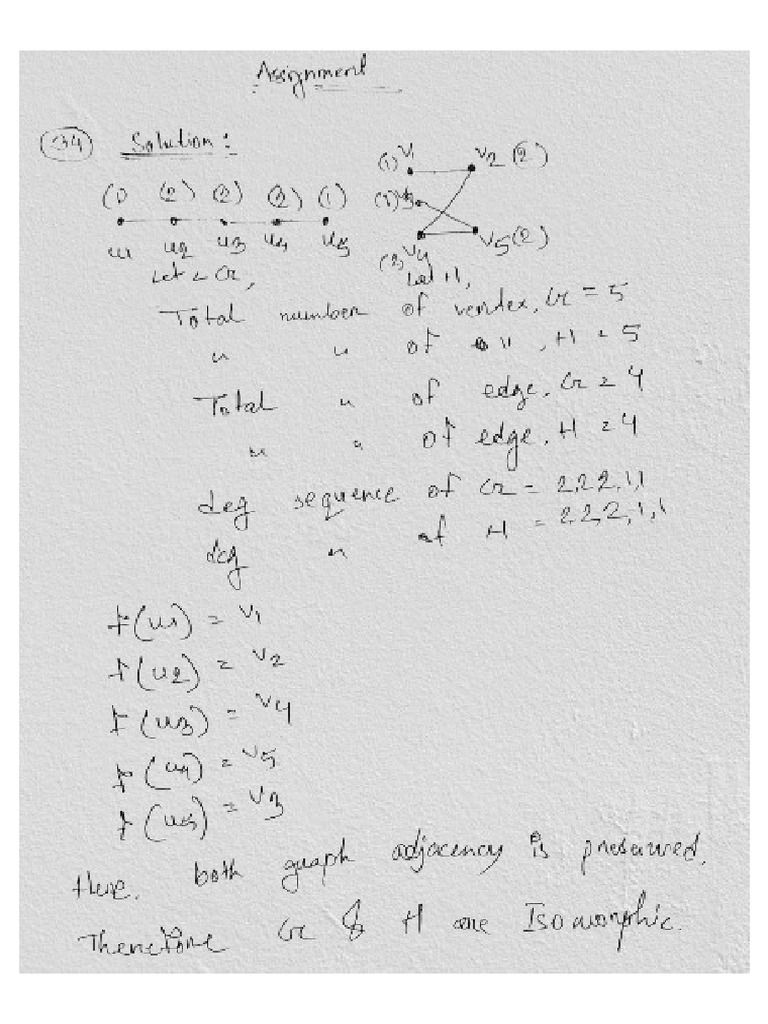 Assignment
34 Solution :
(1) (2) (2) (2) (1)
u1 u2 u3 u4 u5
Let G,
(1) v1 v2 (2)
(1) v3
(2) v4 v5 (2)
Let H,
Total number of vertex, G = 5
" " of " , H = 5
Total " of edge, G = 4
" " of edge, H = 4
deg sequence of G = 2,2,2,1,1
deg " of H = 2,2,2,1,1
f(u1) = v1
f(u2) = v2
f(u3) = v4
f(u4) = v5
f(u5) = v3
Here, both graph adjacency is preserved.
Therefore G & H are Isomorphic.